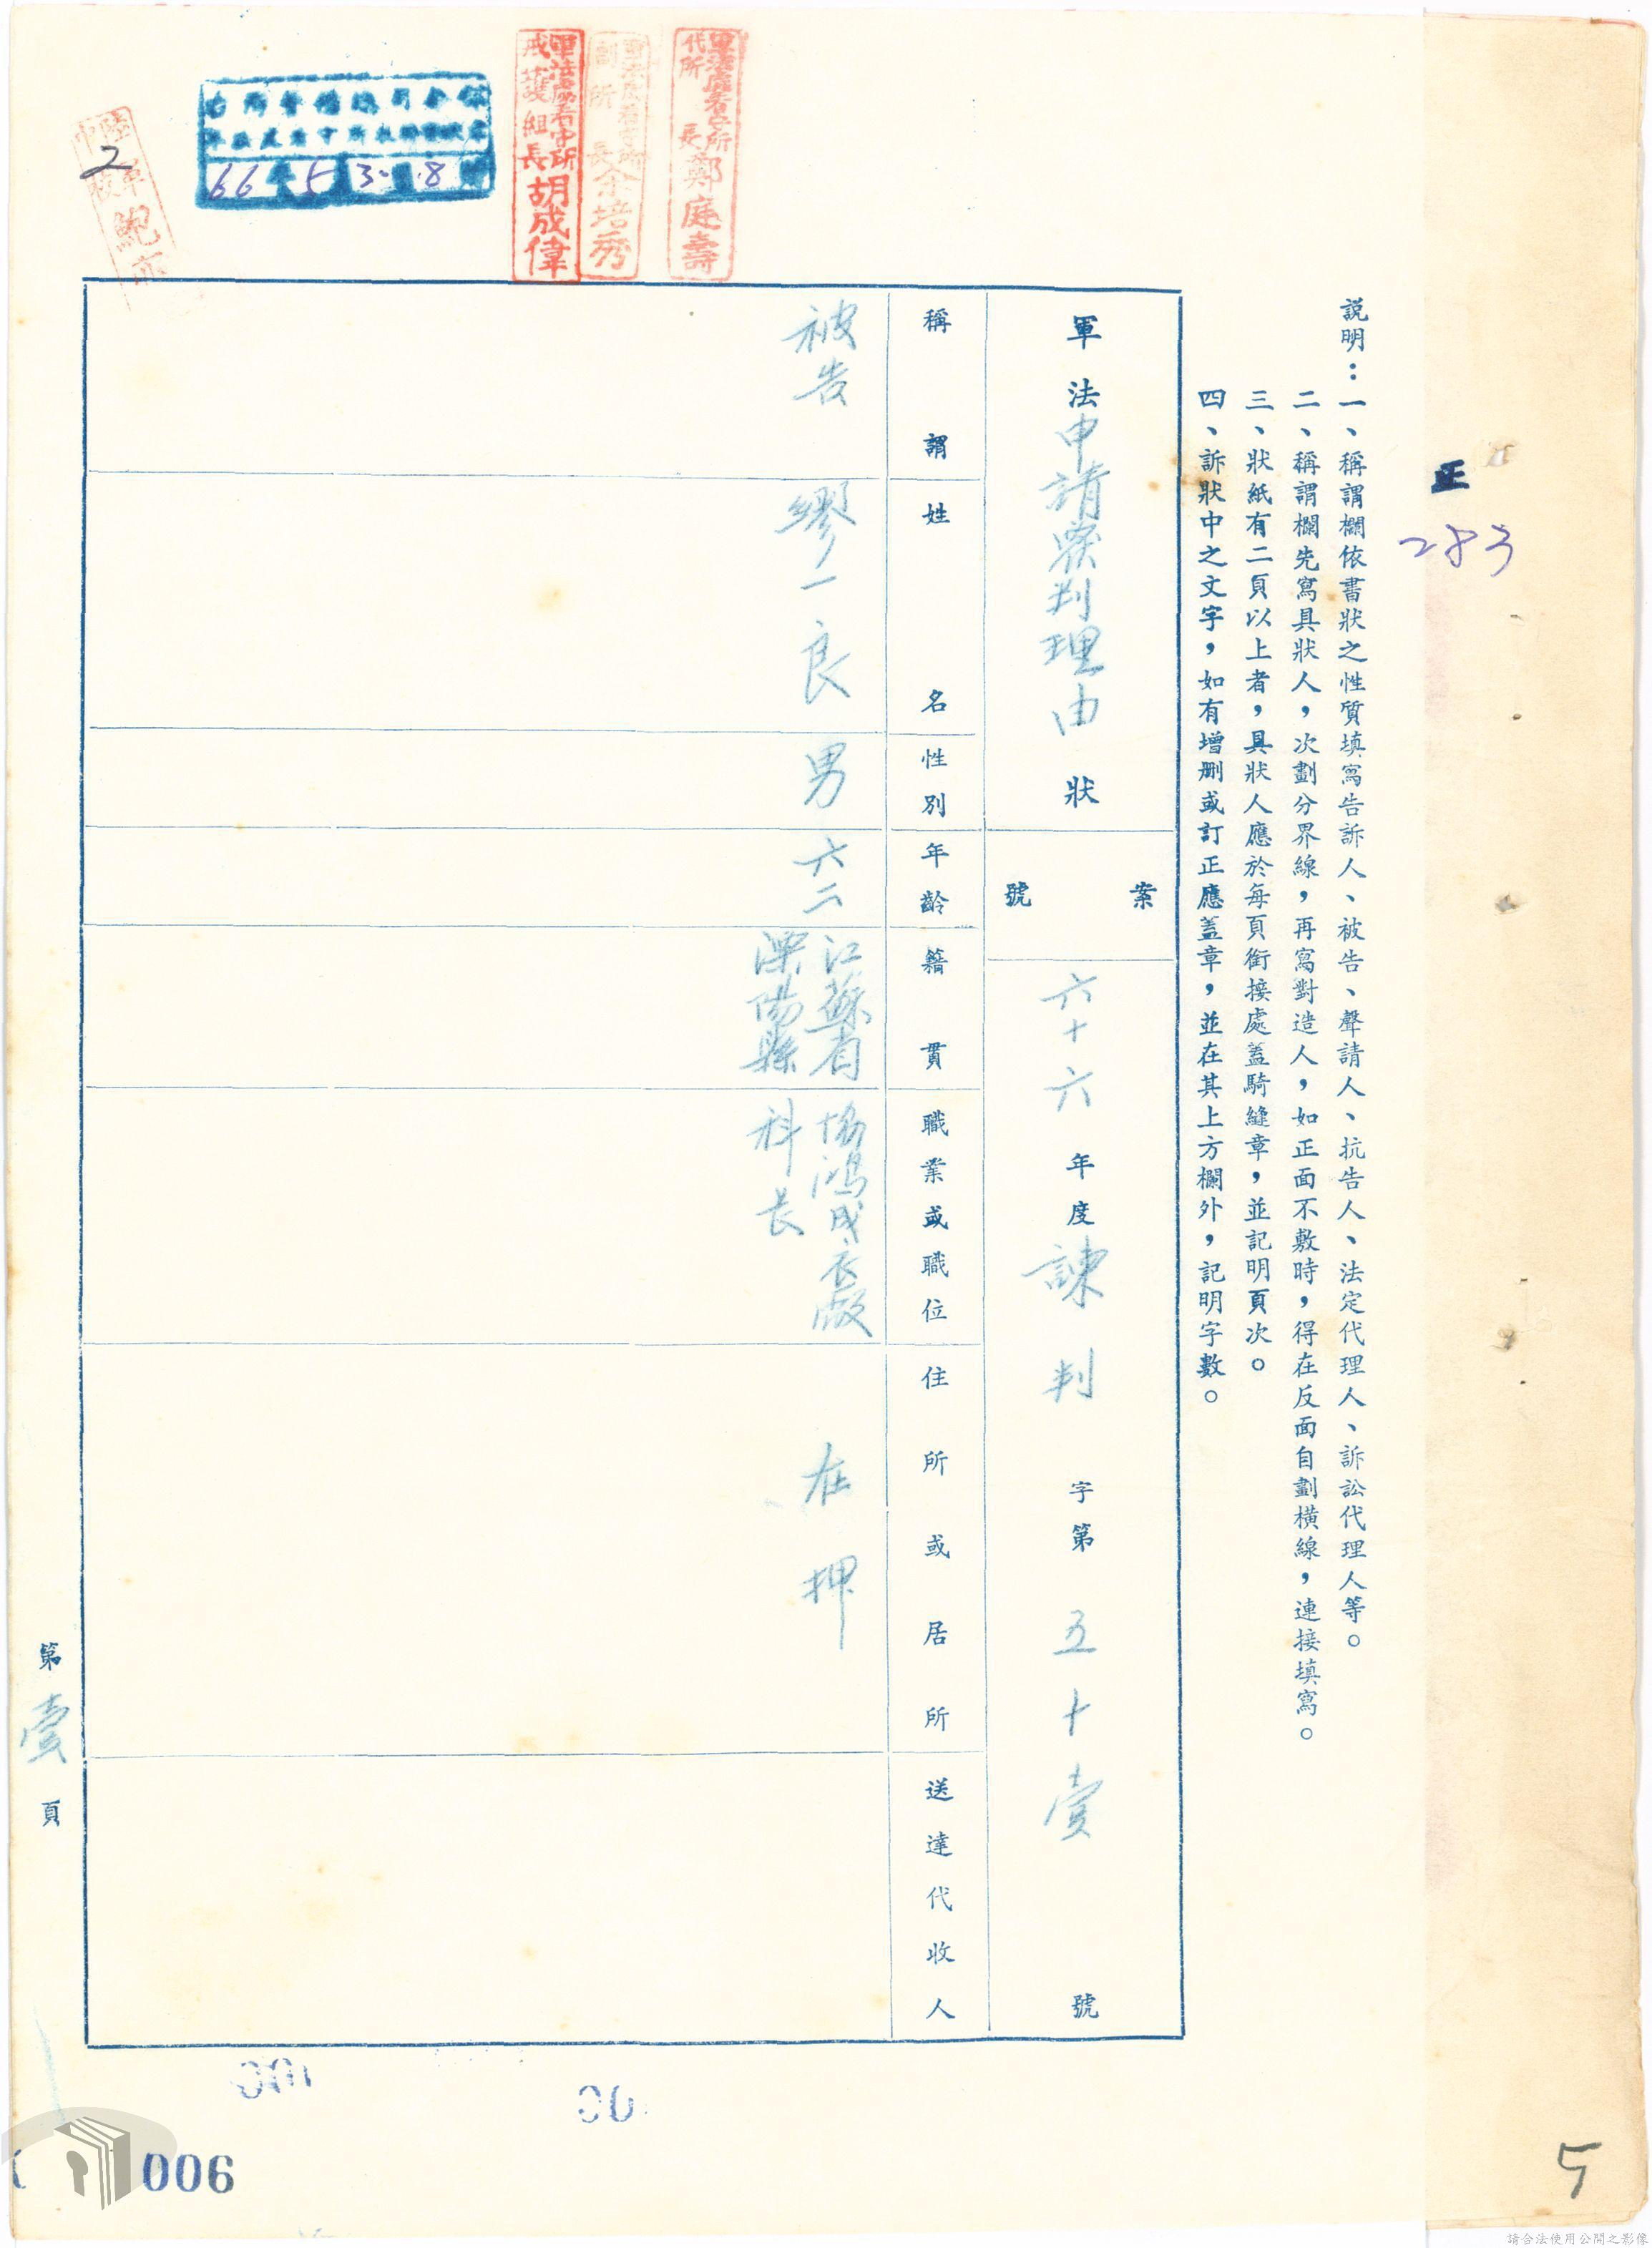 正
283
説明：一、稱謂欄依書狀之性質填寫告訴人、被告、聲請人、抗告人、法定代理人、訴訟代理人等。
二、稱謂欄先寫具狀人，次劃分界線，再寫對造人，如正面不敷時，得在反面自劃橫線，連接填寫。
三、狀紙有二頁以上者，具狀人應於每頁銜接處蓋騎縫章，並記明頁次。
四、訴狀中之文字，如有增删或訂正應蓋章，並在其上方欄外，記明字數。
軍法申請覆判理由狀
案號
六十六年度諫判字第五十壹號
稱謂
姓名
性別
年齡
籍貫
職業或職位
住所或居所
送達代收人
被告
繆一良
男
六二
江蘇省
溧陽縣
協鴻成衣廠
科長
在押
代所長鄭庭壽
副所長余培秀
戒護組長胡成偉
66年5 3 8
2
第壹頁
00
006
5
請合法使用公開之影像